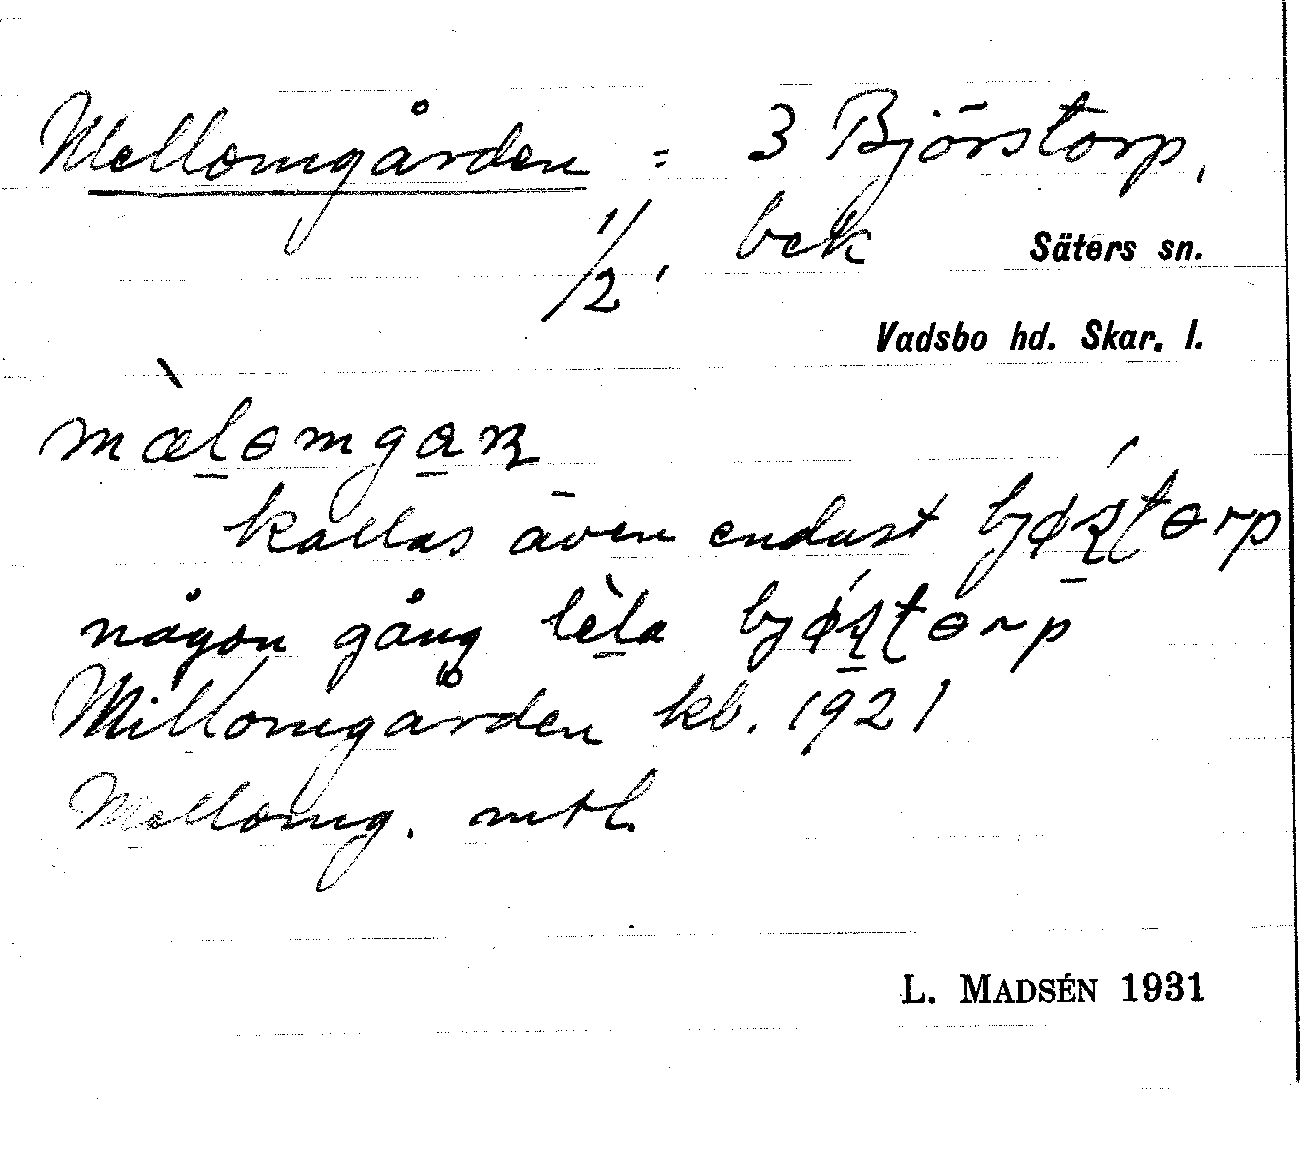 Mellomgården = 3 Björstorp,
1/2, bek Säters sn.
Vadsbo hd. Skar. l.
mæ̀l̠ɵmga̠ɳ
kallas även endust bjǿʂ̠ʈɵrp
någon gång lèl̠a bjǿʂ̠ʈɵrp
Millomgården kb. 1921
Mellomg. mtl.
L. MADSÉN 1931